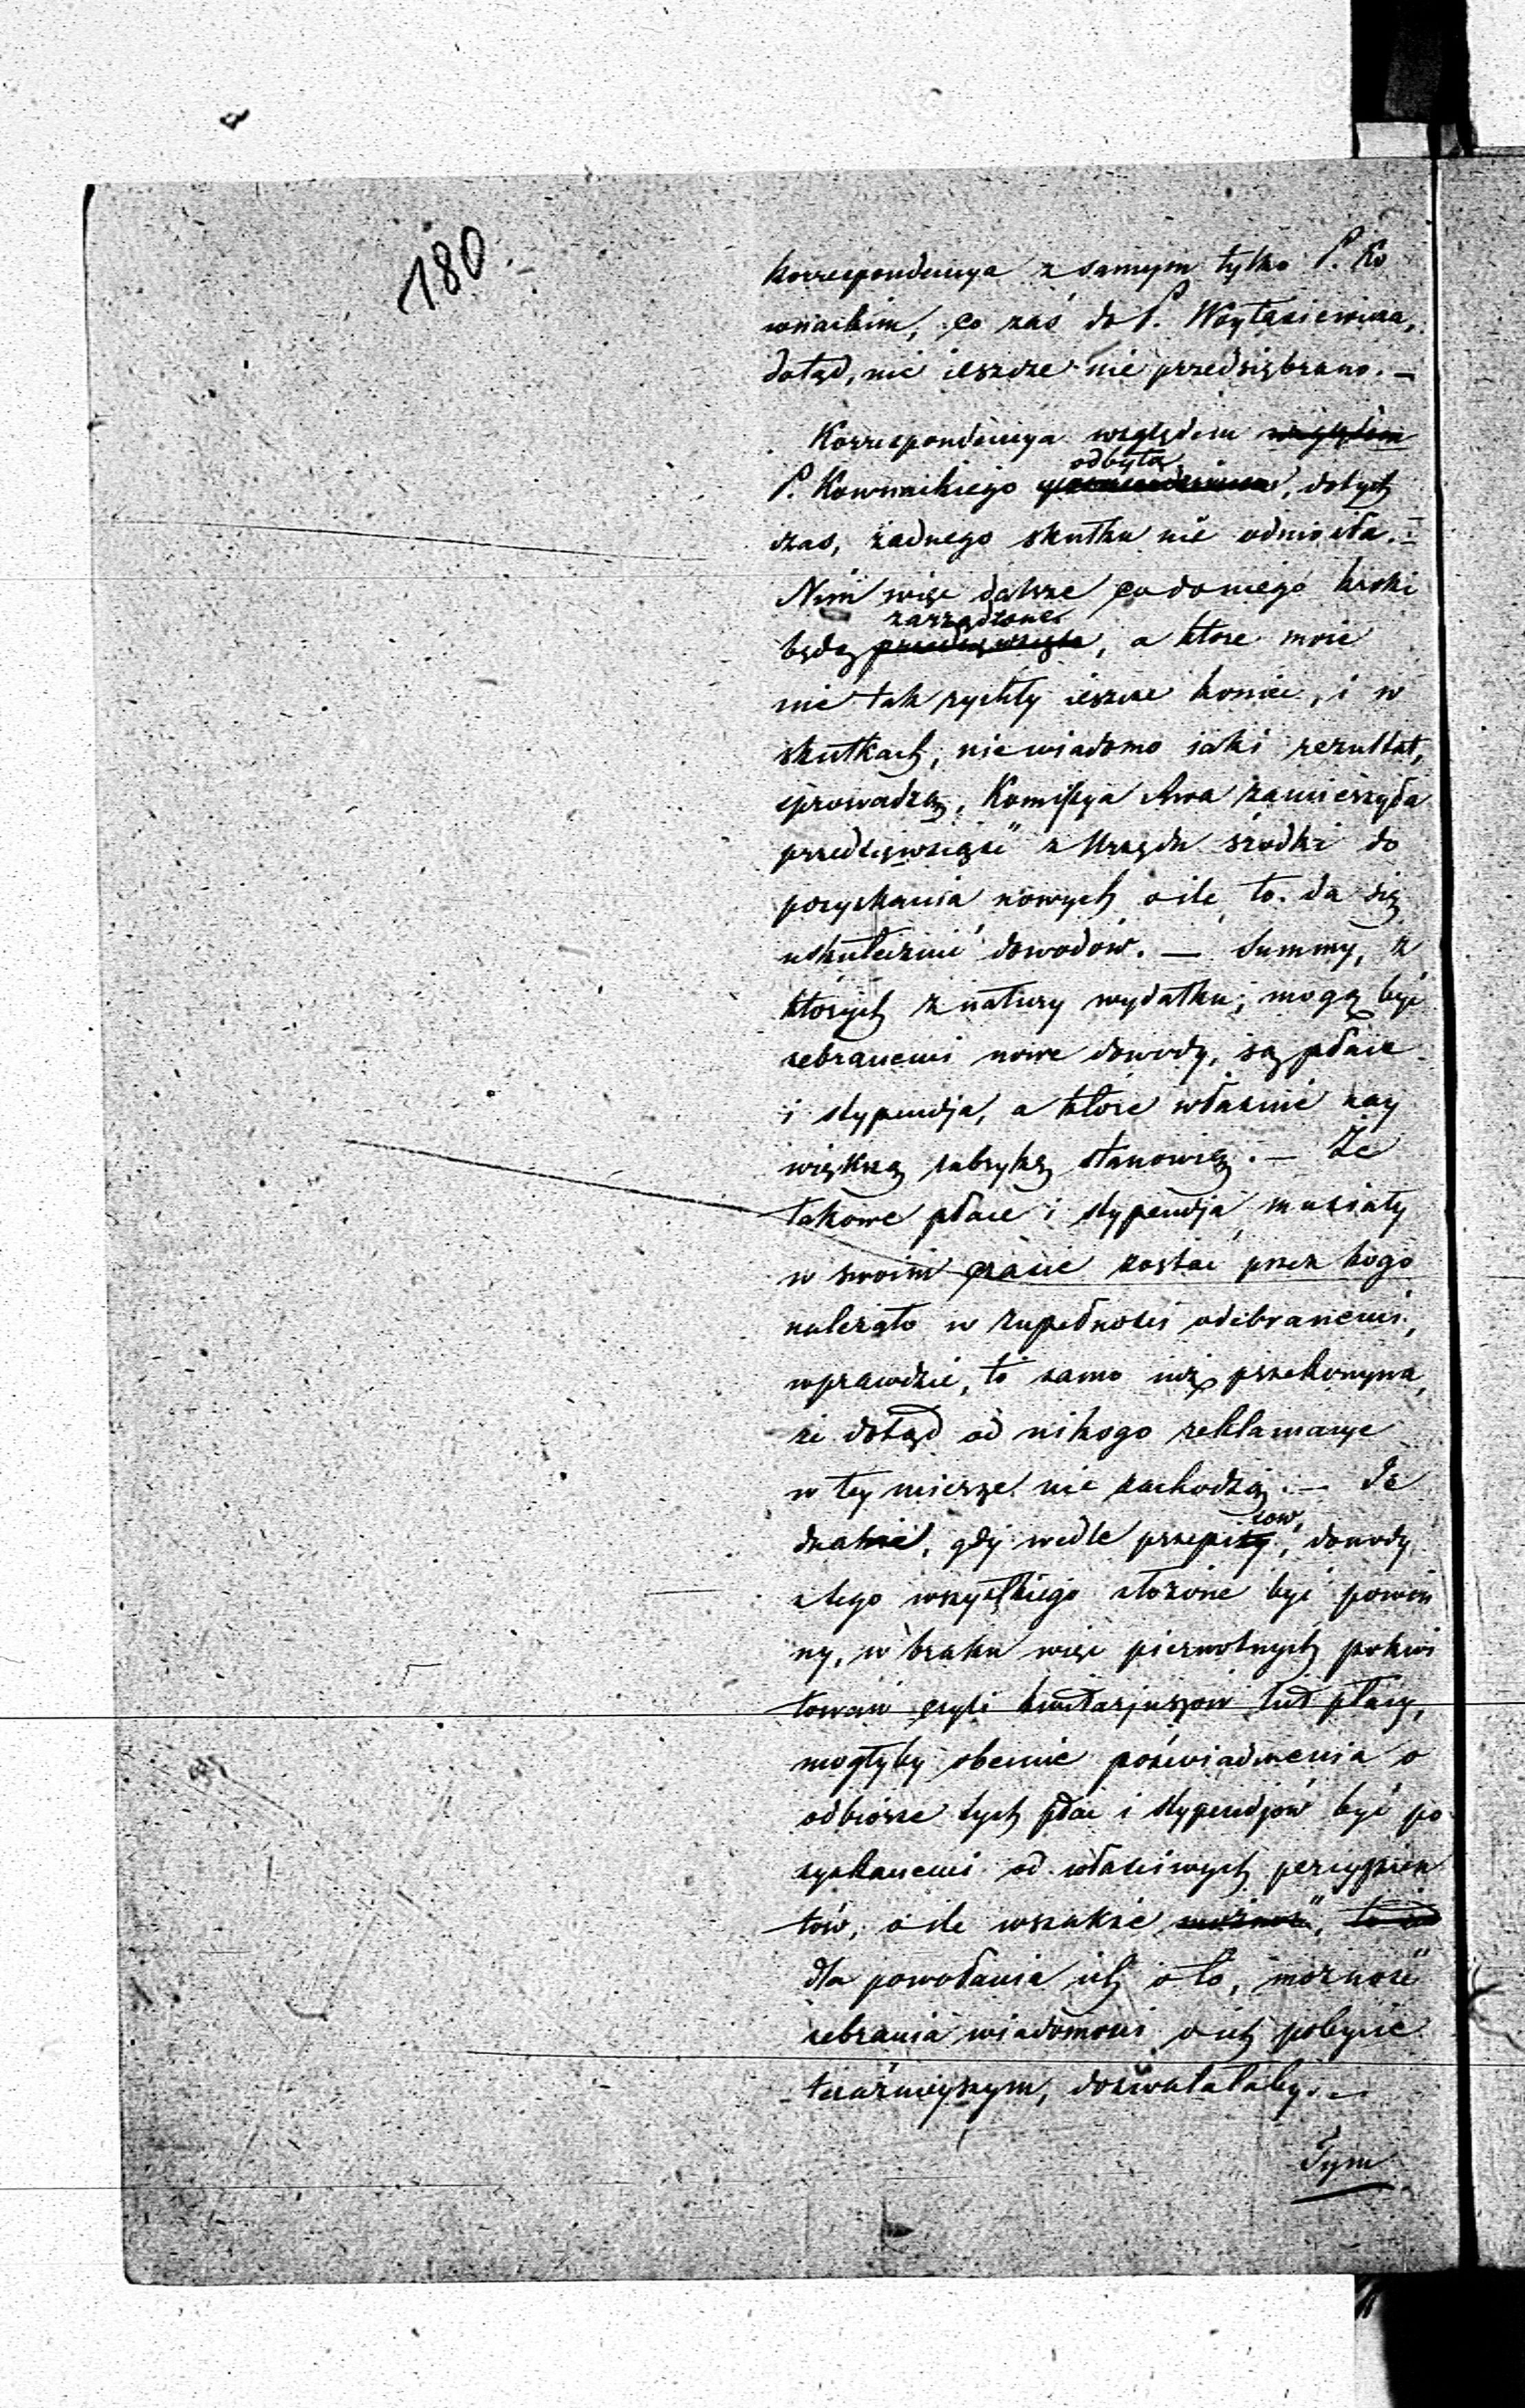 180.
korrespondencya z samym tylko P. Ko
wnackim, co zaś do P. Woytasiewicza,
dotąd, nic ieszcze nie przedsiębrano. —
Korrespondencya względem względem
P. Kownackiego odbyta, dotych
czas, żadnego skutku nie odniosła. —
Nim więc dalsze co do niego kroki
będą przedsięwzięte zarządzone, a które może
nie tak rychły ieszcze koniec, i w
skutkach, niewiadomo iaki rezultat,
sprowadzą, Kommissya Awa zamierzyła
przedsięwziąść z Urzędu środki do
pozyskania nowych o ile to da się
uskutecznić dowodów. — Summy, z
których z natury wydatku, mogą być
zebranemi nowe dowody, są płace
i stypendja, a które właśnie nay
większą rubrykę stanowią. — Że
takowe płace i stypendja musiały
w swoim czasie zostać przez kogo
należało w zupełności odebranemi,
wprawdzie, to samo iuż przekonywa,
że dotąd od nikogo reklamacye
w tey mierze nie zachodzą. — Je
dnakże, gdy wedle przepisów, dowody
z tego wszystkiego złożone być powin
ny, w braku więc pierwotnych pokwi
towań czyli kwitarjuszów list płacy,
mogłyby obecnie poświadczenia o
odbiorze tych płac i stypendjów być po
zyskanemi od właściwych percypien
tów, o ile wszakże możność, to
dla powołania ich o to, możność
zebrania wiadomości o ich pobycie
teraźnieyszym, dozwalałaby. —
Tym